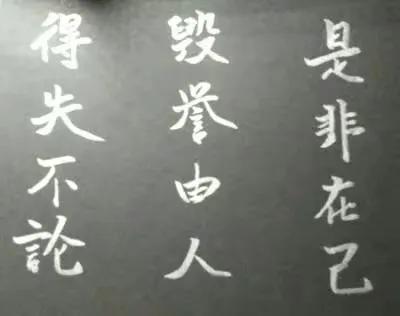 是非在己
毀誉由人
得失不論